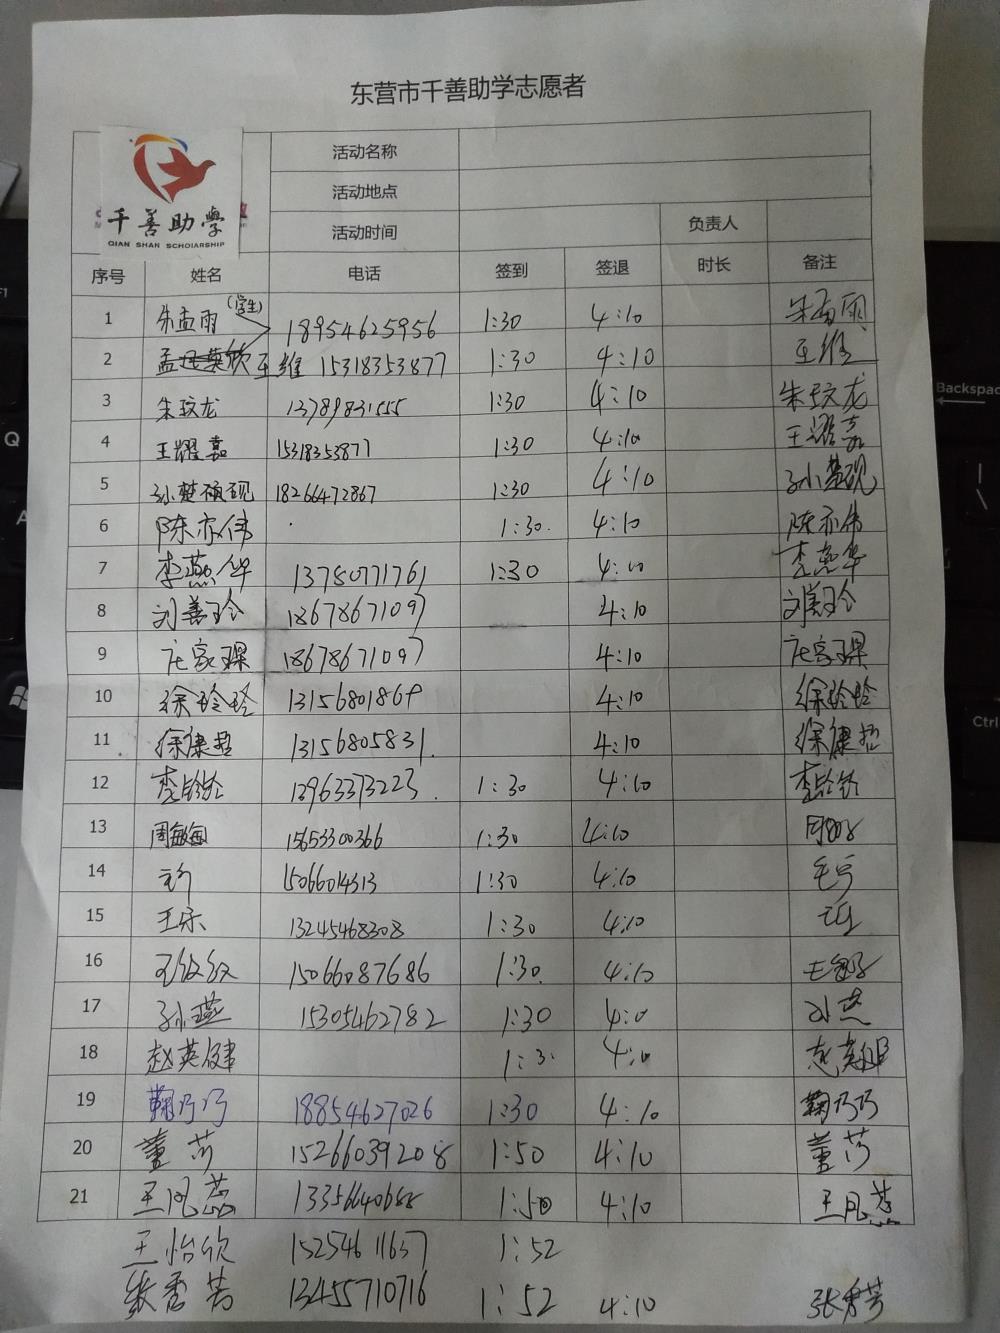 东营市千善助学志愿者
千善助學
QIAN SHAN SCHOLARSHIP
活动名称
活动地点
活动时间 负责人
序号 姓名 电话 签到 签退 时长 备注
1 朱孟雨 (学生) 18954625956 1:30 4:10 朱孟雨
2 王维 15318353877 1:30 4:10 王维
3 朱玟龙 13789831555 1:30 4:10 朱玟龙
4 王耀嘉 15318353877 1:30 4:10 王耀嘉
5 孙楚砚 18266472867 1:30 4:10 孙楚砚
6 陈亦伟 1:30. 4:10 陈亦伟
7 李燕华 13780771761 1:30 4:10 李燕华
8 刘善玲 18678671097 4:10 刘善玲
9 庄家琛 18678671097 4:10 庄家琛
10 徐玲玲 13156801869 4:10 徐玲玲
11 徐康哲 13156805831. 4:10 徐康哲
12 李玲玲 13963373223. 1:30 4:10 李玲玲
13 周敏敏 15653300366 1:30 4:10
14 15066014313 1:30 4:10
15 王乐 13245468308 1:30 4:10
16 15066087686 1:30. 4:10
17 孙燕 15305462782 1:30 4:10 孙燕
18 赵英健 1:3 4:10 赵英健
19 鞠巧巧 18854627026 1:30 4:10 鞠巧巧
20 董莎 15266039208 1:50 4:10 董莎
21 王凤蕊 13356640688 1:50 4:10 王凤蕊
王怡欣 15254611637 1:52
张秀芳 13455710716 1:52 4:10 张秀芳
F1
Q
A
Backspac
Ctrl